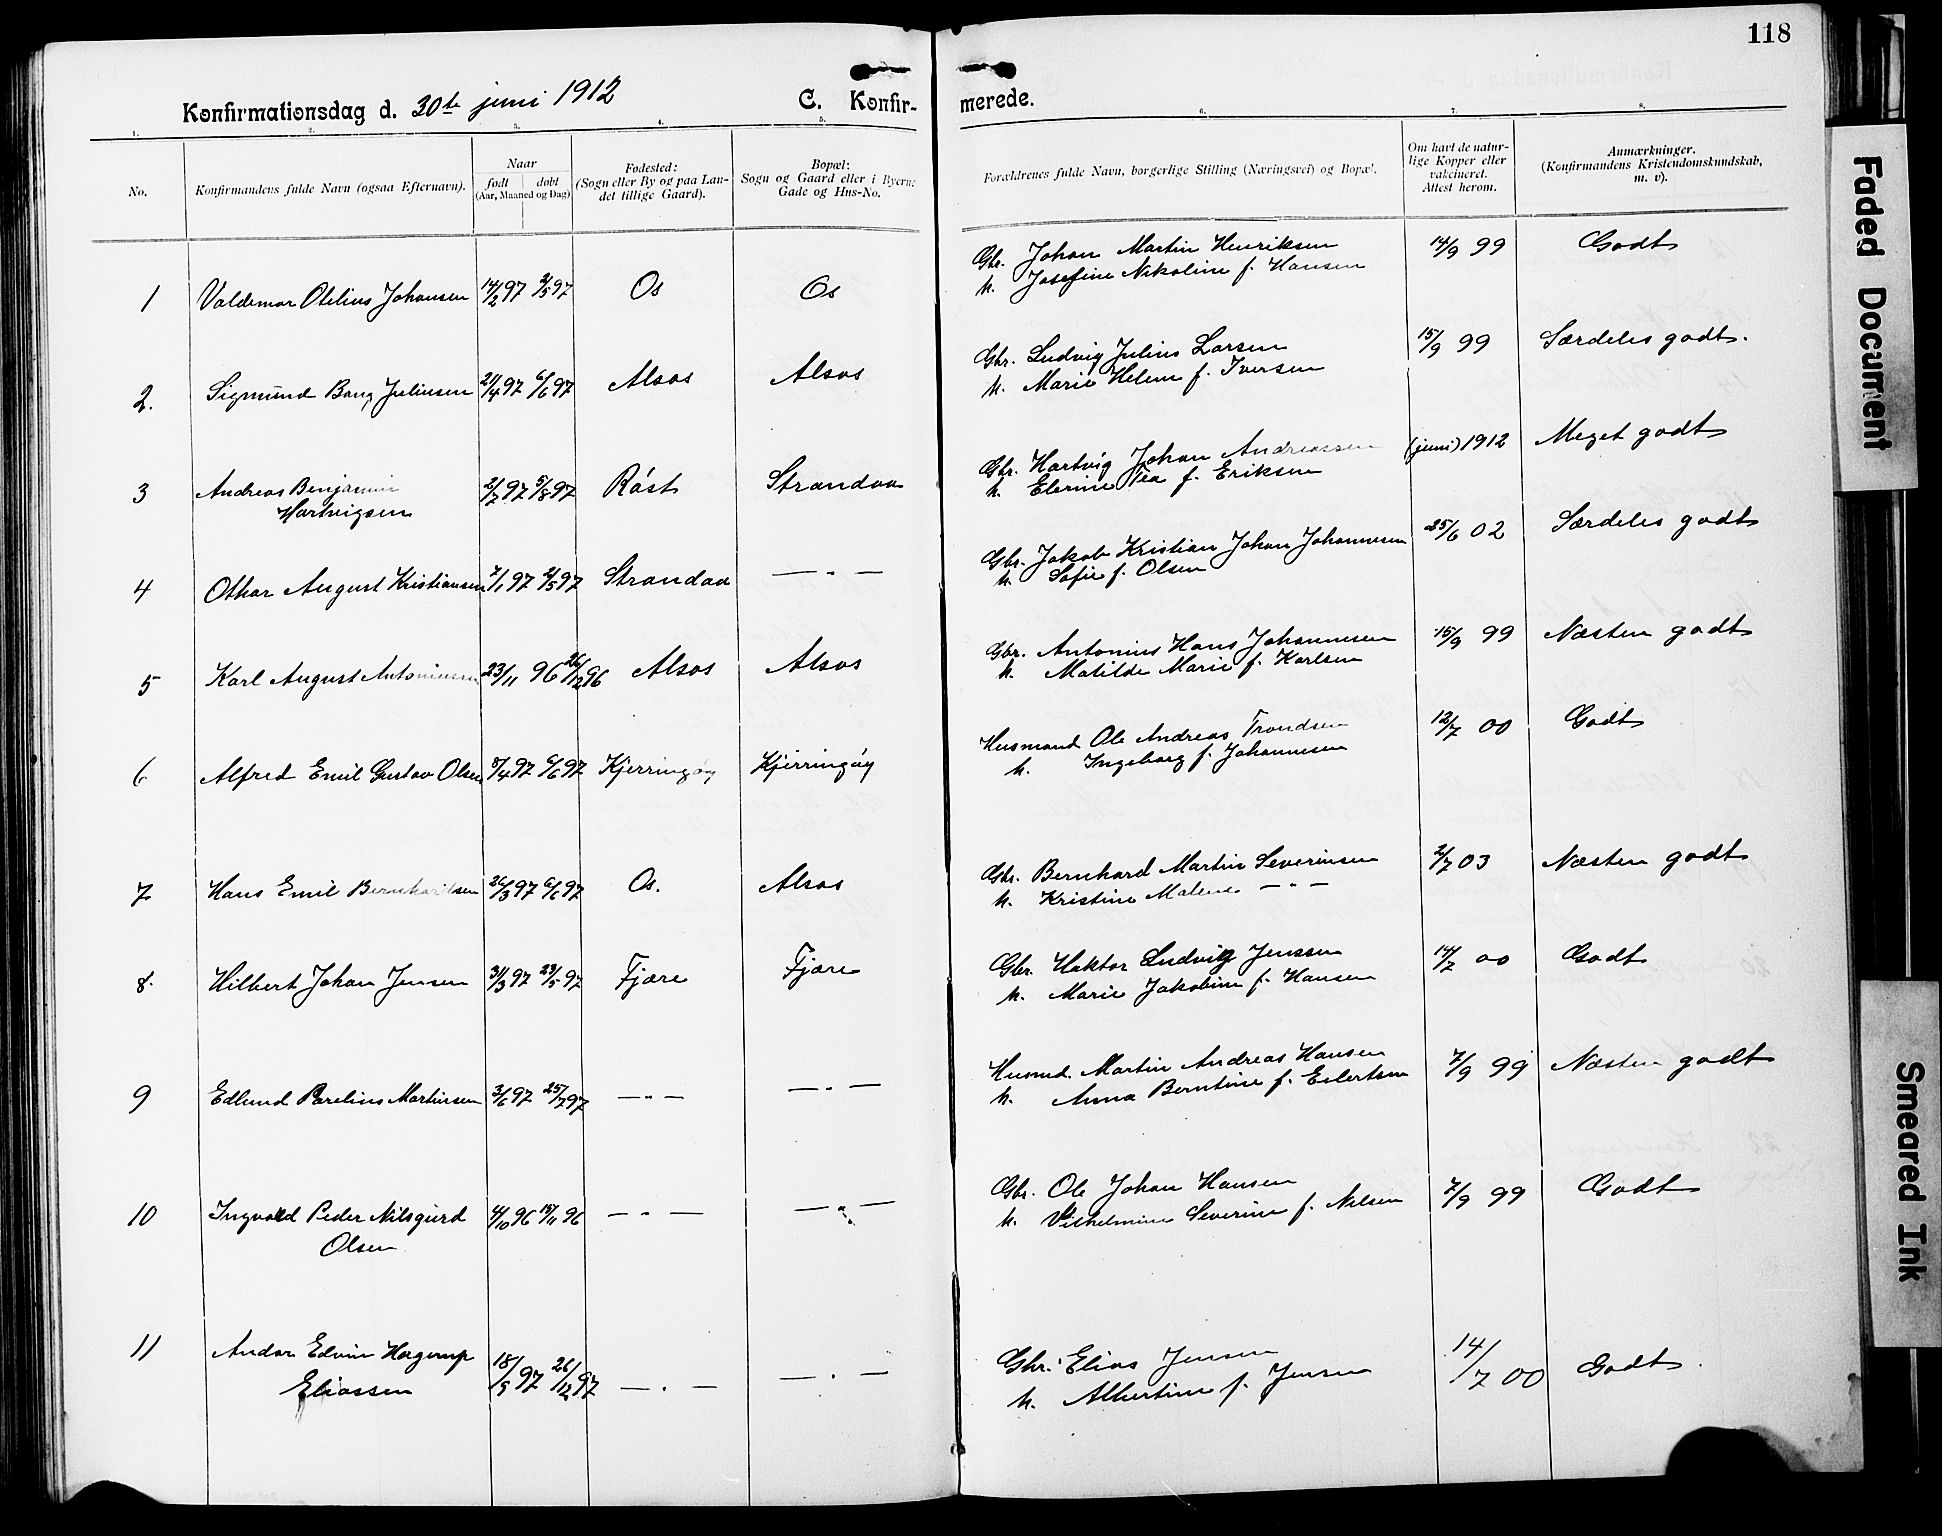 118
Konfirmationsdag d. 30te juni 1912
C. Konfirmerede.
1. 2. 3. 4. 5. 6. 7. 8.
No.
Konfirmandens fulde Navn (ogsaa Efternavn).
Naar
født døbt
(Aar, Maaned og Dag)
Fødested:
(Sogn eller By og paa Landet tillige Gaard).
Bopæl:
Sogn og Gaard eller i Byern:
Gade og Hus-No.
Forældrenes fulde Navn, borgerlige Stilling (Næringsvei) og Bopæl.
Om havt de naturlige Kopper eller vakcineret.
Attest herom.
Anmærkninger.
(Konfirmandens Kristendomskundskab, m. v).
1 Valdemar Otelius Johansen 14/2 97 2/5 97 Os Os
Gbr. Johan Martin Henriksen 14/9 99 Godt
h. Josefine Nikoline f. Hansen
2. Sigmund Bang Juliussen 21/4 97 6/6 97 Alsos Alsos
Gbr. Ludvig Julius Larsen 15/9 99 Særdeles godt.
h. Marie Helene f. Iversen
3 Andreas Benjamin 2/7 97 5/8 97 Røst Strandaa
Hartvigsen
Gbr. Hartvig Johan Andreassen (juni) 1912 Meget godt
h. Elerine Tea f. Eriksen
4 Othar August Kristiansen 7/1 97 2/5 97 Strandaa — " —
Gbr. Jakob Kristian Johan Johannesen 25/6 02 Særdeles godt
h. Sofie f. Olsen
5 Karl August Antoniussen 23/11 96 26/12 96 Alsos Alsos
Gbr. Antonius Hans Johannesen 15/9 99 Næsten godt
h. Matilde Marie f. Karlsen
6 Alfred Emil Gustav Olsen 5/4 97 6/6 97 Kjerringøy Kjerringøy
Husmand Ole Andreas Trondsen 12/7 00 Godt
h. Ingeborg f. Johannesen
7 Hans Emil Bernhardsen 26/3 97 6/6 97 Os. Alsos
Gbr. Bernhard Martin Severinsen 2/7 03 Næsten godt
h. Kristine Malene — " —
8. Hilbert Johan Jensen 31/3 97 23/5 97 Fjære Fjære
Gbr. Haktor Ludvig Jenssen 14/7 00 Godt
h. Marie Jakobine f. Hansen
9 Edlund Parelius Martinsen 3/6 97 25/7 97 — " — — " —
Husmd. Martin Andreas Hansen 7/9 99 Næsten godt
h. Anna Berntine f. Eilertsen
10 Ingvald Peder Nilsgurd 4/10 96 19/11 96 — " — — " —
Olsen
Gbr. Ole Johan Hansen 7/9 99 Godt
h. Vilhelmine Severine f. Nilsen
11 Andor Edvin Hagerup 18/5 97 26/12 97 — " — — " —
Eliassen
Gbr. Elias Jensen 14/7 00 Godt
h. Albertine f. Jensen
Faded Document
Smeared Ink